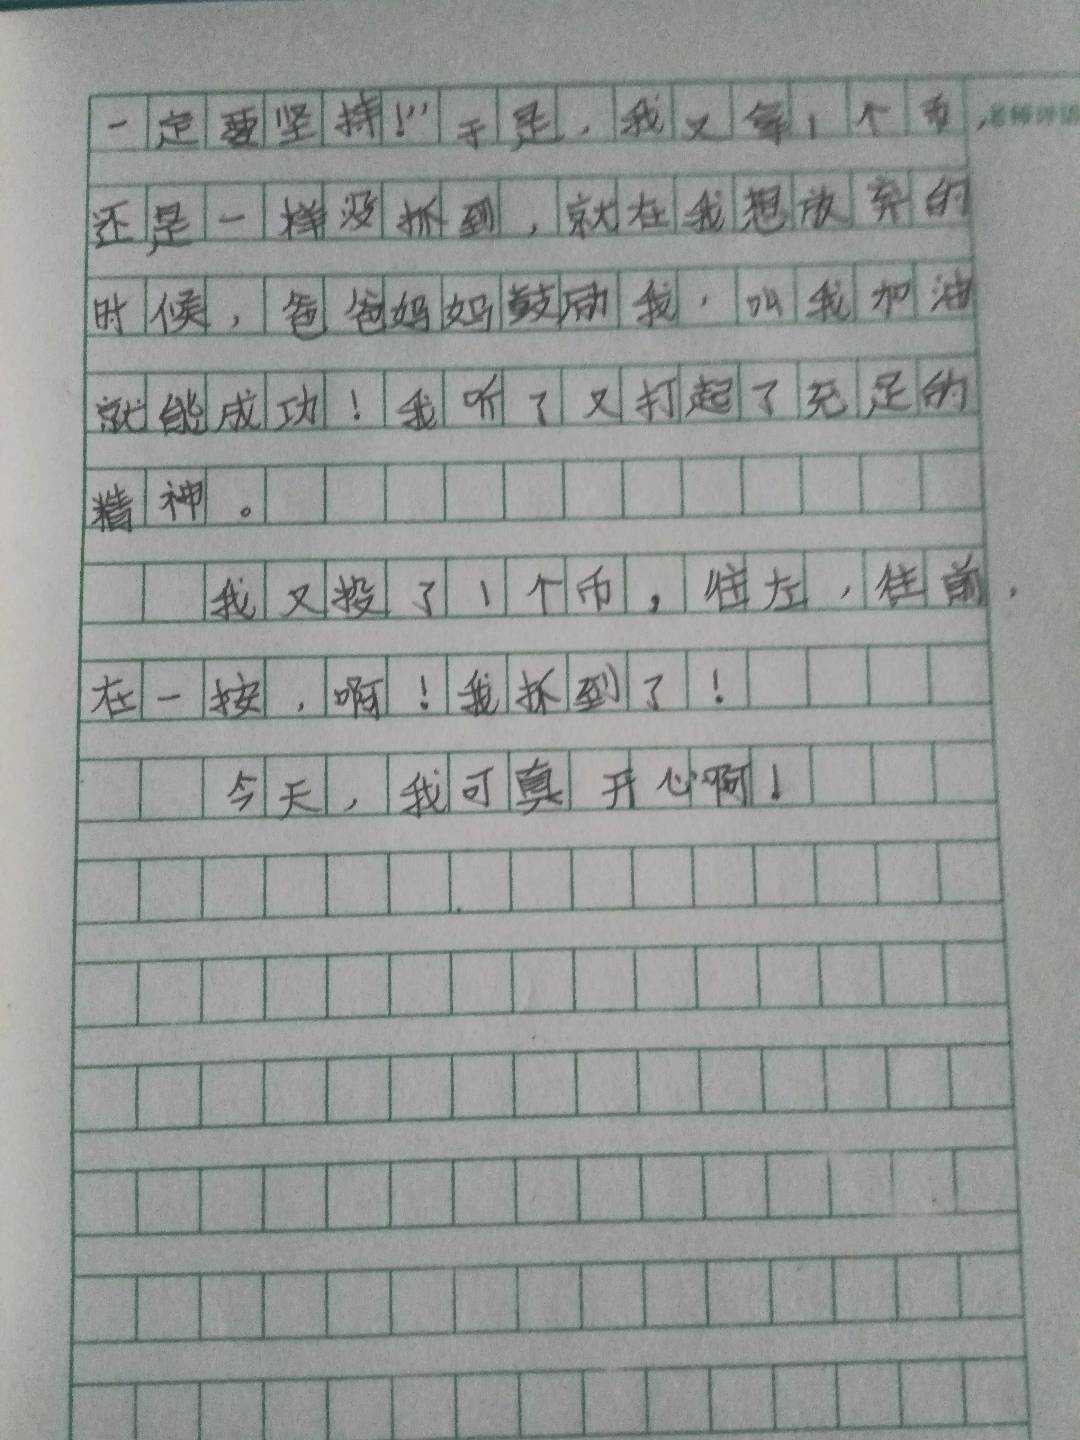 一定要坚持!”于是，我又拿1个币，老师评语
还是一样没抓到，就在我想放弃的
时候，爸爸妈妈鼓励我，叫我加油
就能成功！我听了又打起了充足的
精神。
我又投了1个币，往左，往前，
在一按，啊！我抓到了！
今天，我可真开心啊！